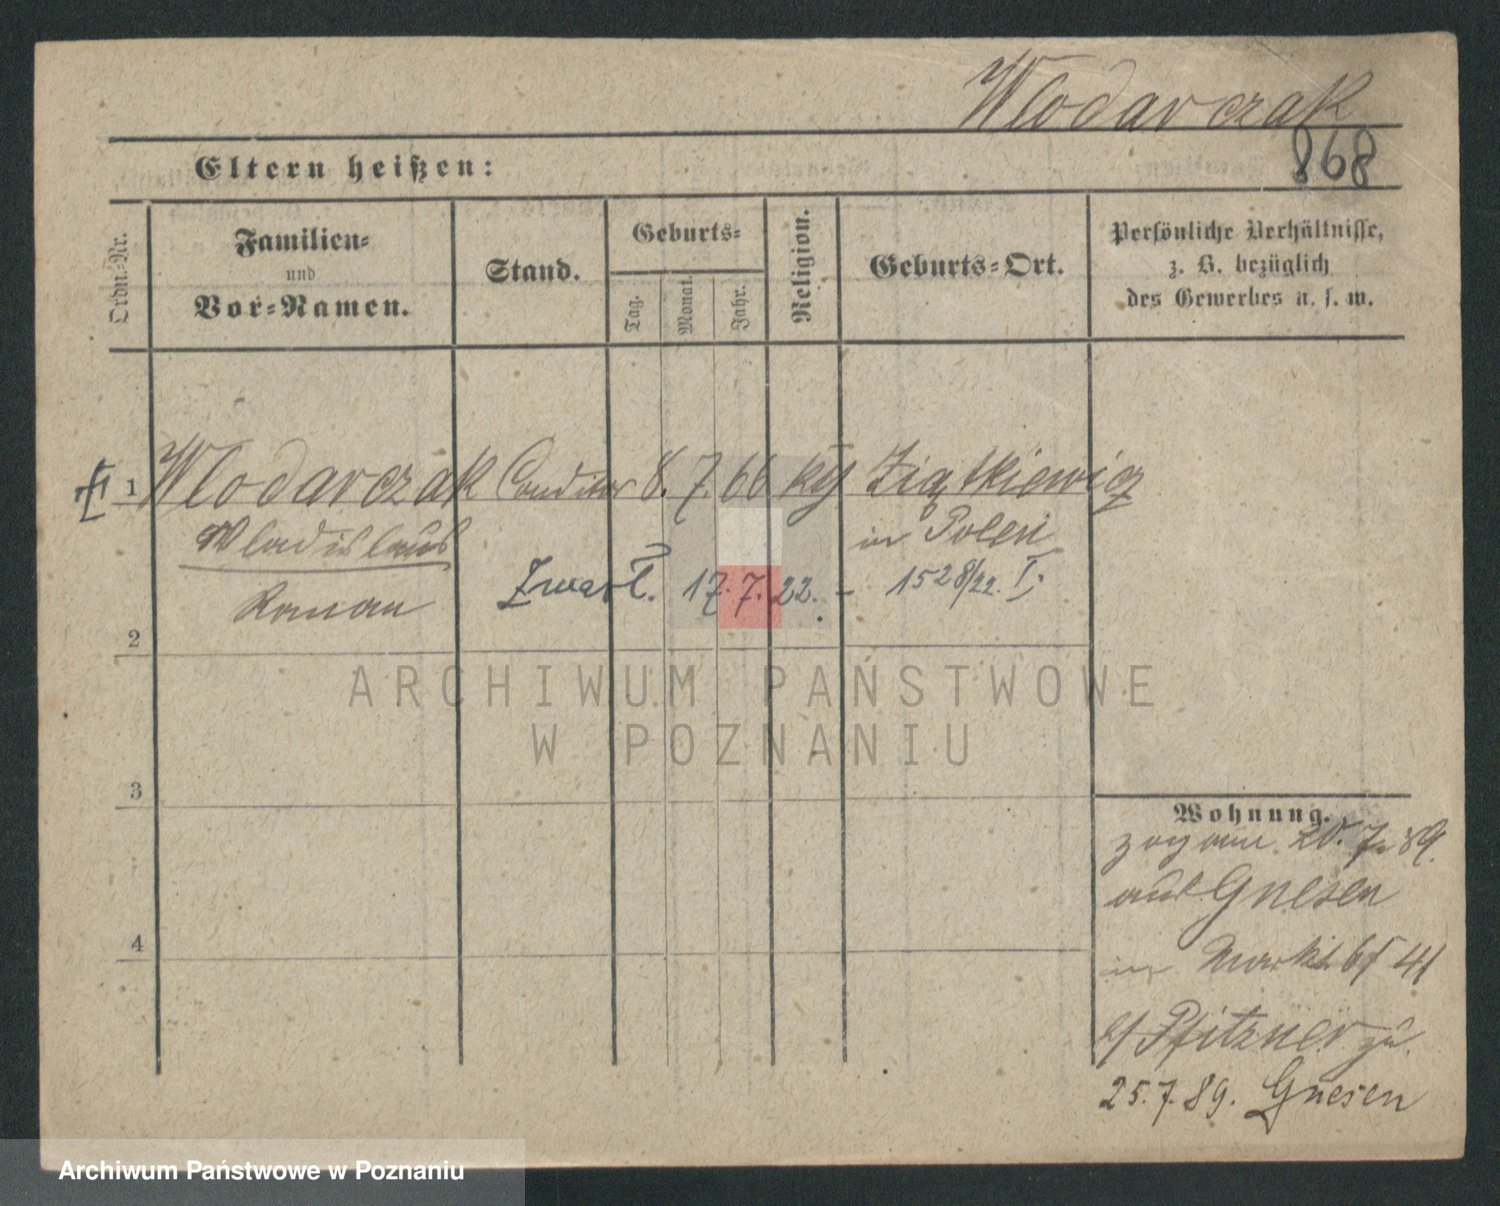 Wlodarczak
868
Eltern heißen:
Ordn.-Nr.
Familien-
und
Vor-Namen.
Stand.
Geburts-
Tag.
Monat.
Jahr.
Religion.
Geburts-Ort.
Persönliche Verhältnisse,
z. B. bezüglich
des Gewerbes u. s. w.
1 Wlodarczak Conditor 8. 7. 66 Ziątkiewicz
Wladislaus in Polen
Roman
17. 7. 22. - 1528/22. I.
2
ARCHIWUM PAŃSTWOWE
W POZNANIU
3
Wohnung.
zog am 20. 7. 89.
aus Gnesen
4
in Markt 41
Pfitzner zu
25.7.89. Gnesen
Archiwum Państwowe w Poznaniu